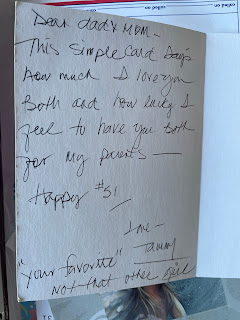 Dear dad & mom -
This simple card says
how much I love you
both and how lucky I
feel to have you both
for my parents —
Happy #51
Love -
Tammy
"your favorite"
not that other girl
called on
called on
31